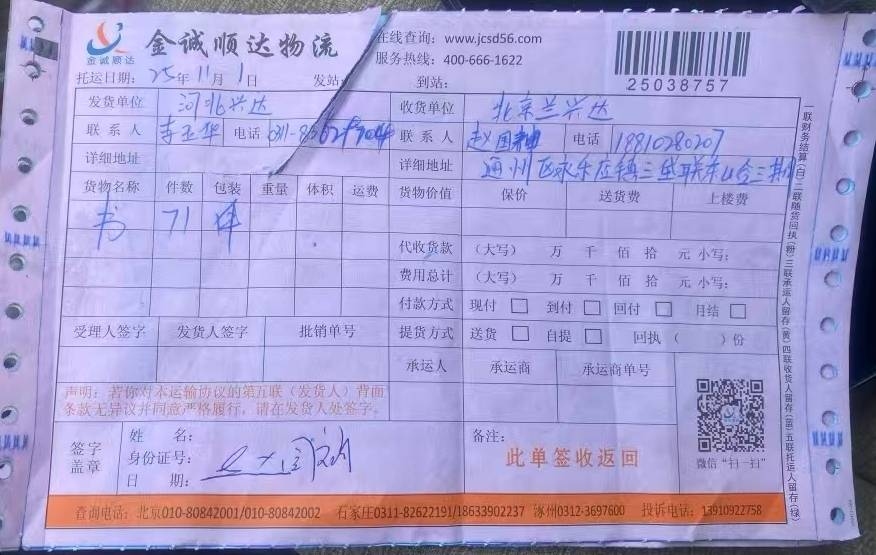 金诚顺达
金诚顺达物流
在线查询: www.jcsd56.com
服务热线: 400-666-1622
25038757
托运日期: 25年11月1日 发站 到站:
发货单位 河北兴达 收货单位 北京兰兴达
联系人 李玉华 电话 联系人 赵国 电话 18810280207
详细地址 详细地址 通州区永乐店镇三垡
货物名称 件数 包装 重量 体积 运费 货物价值 保价 送货费 上楼费
书 71 件
代收货款 (大写) 万 千 佰 拾 元 小写:
费用总计 (大写) 万 千 佰 拾 元 小写:
付款方式 现付 □ 到付 □ 回付 □ 月结 □
受理人签字 发货人签字 批销单号 提货方式 送货 □ 自提 □ 回执 ( )份
承运人 承运商 承运商单号
声明: 若你对本运输协议的第五联(发货人)背面
条款无异议并同意严格履行, 请在发货人处签字。
签字
盖章
姓 名:
身份证号:
日 期:
备注:
此单签收返回
微信"扫一扫"
一联财务结算(白)二联随货回执(粉)三联承运人留存(黄)四联收货人留存(蓝)五联托运人留存(绿)
查询电话: 北京010-80842001/010-80842002 石家庄0311-82622191/18633902237 涿州0312-3697600 投诉电话: 13910922758